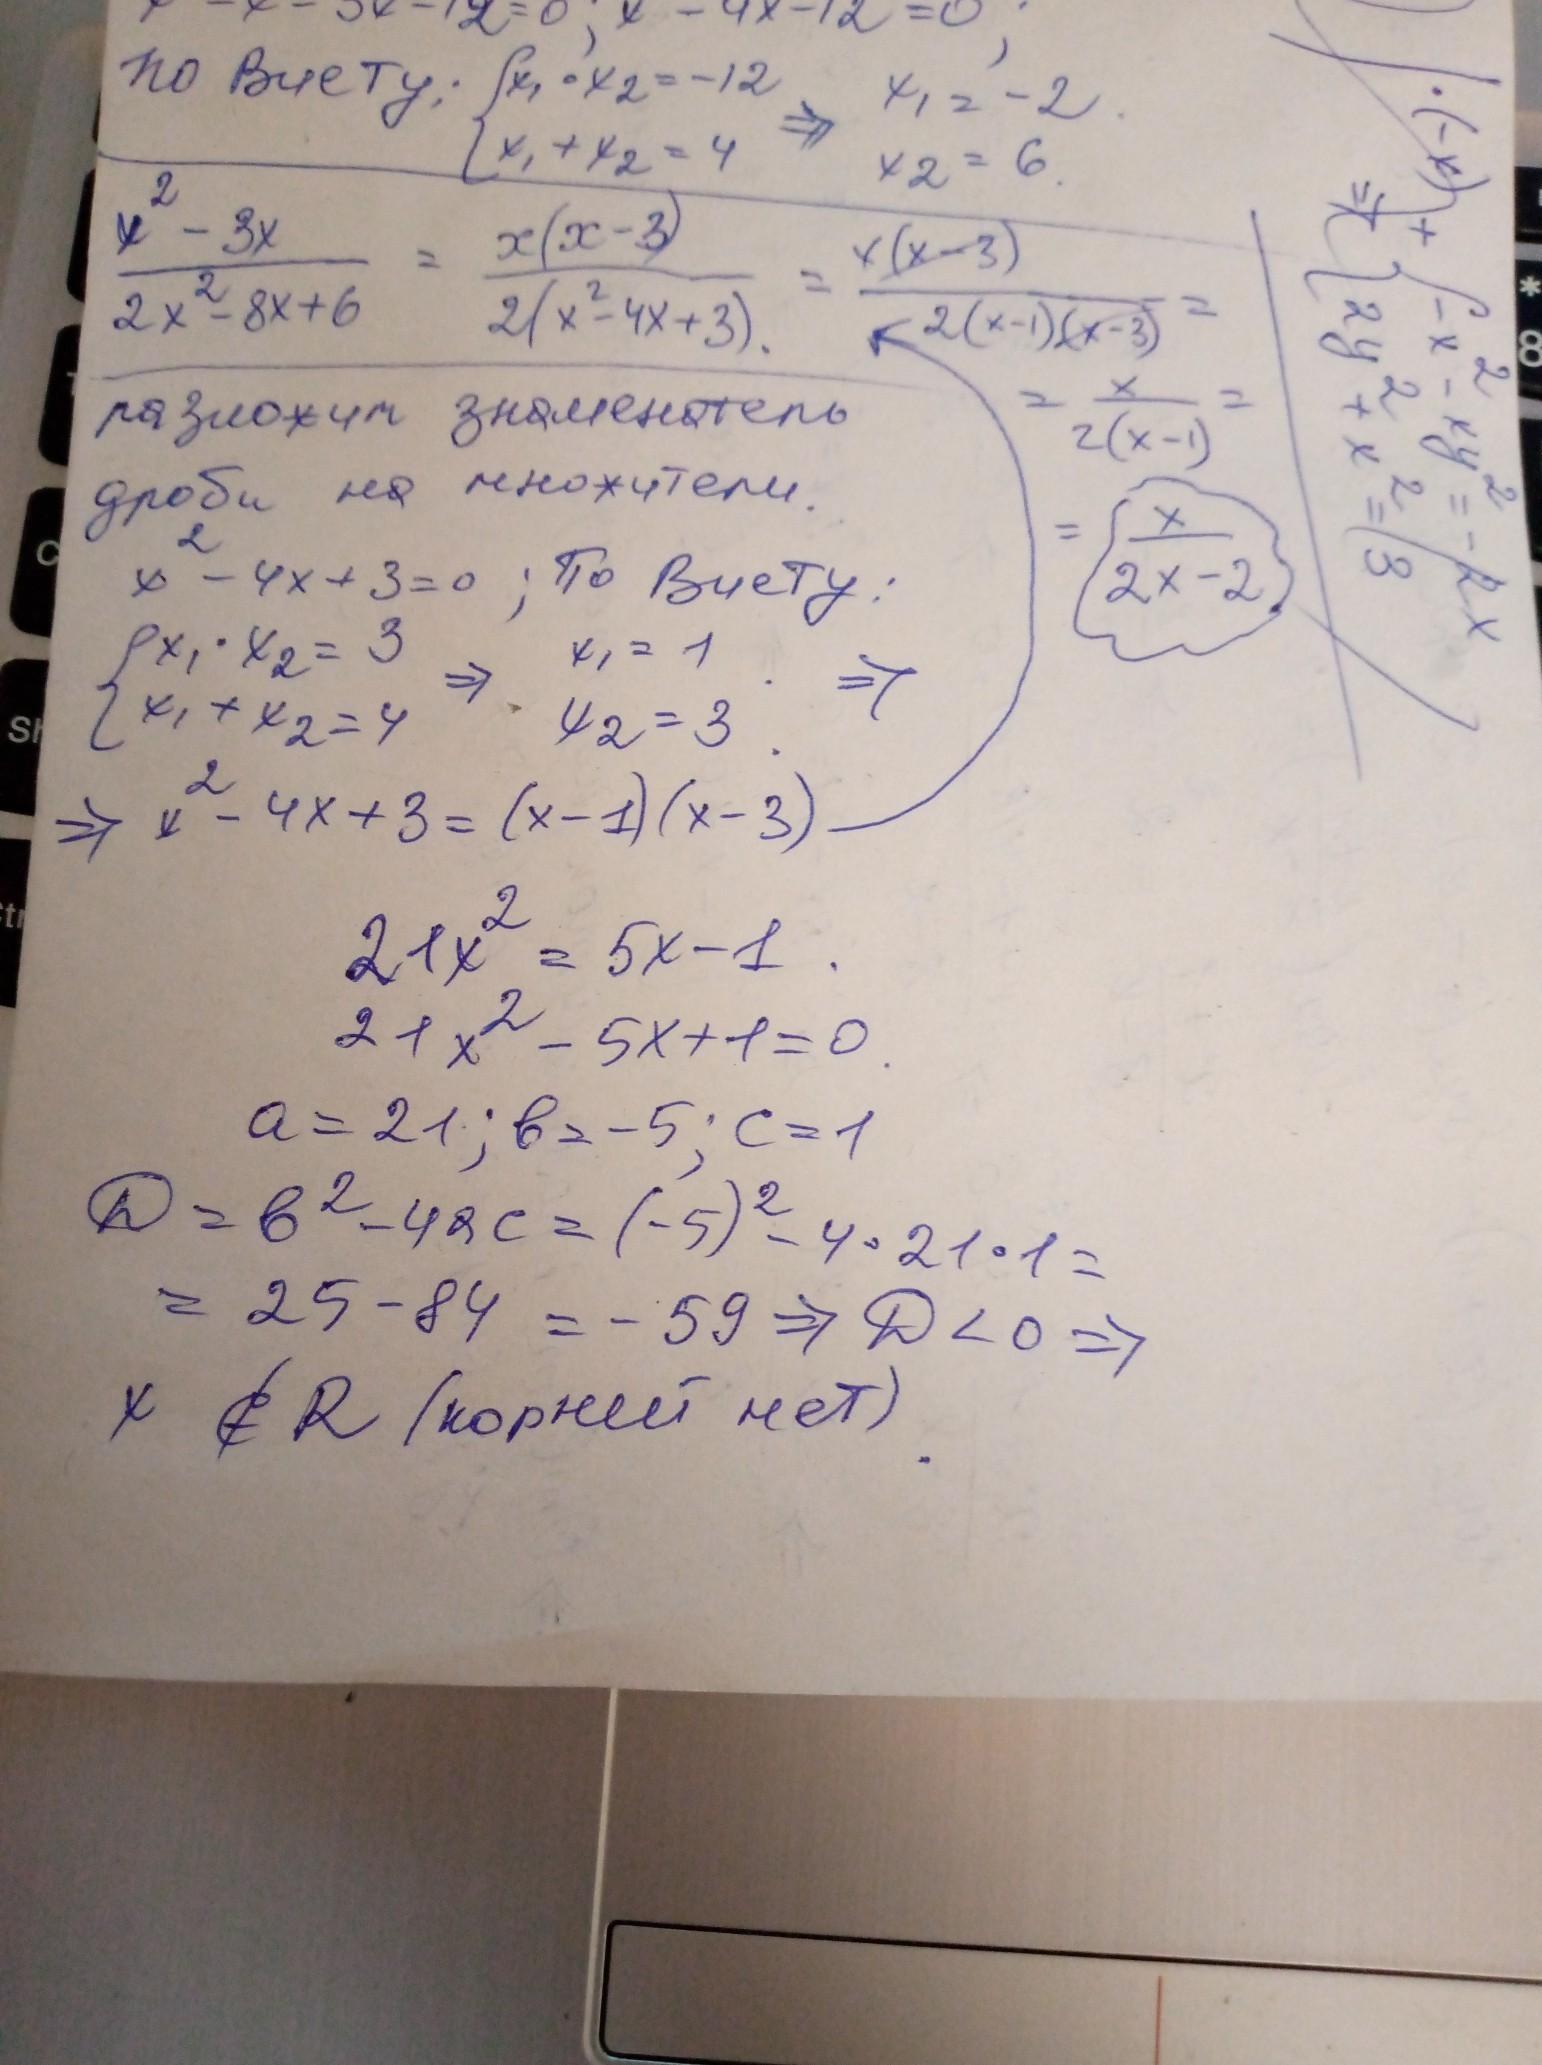 x² - x - 3x - 12 = 0; x² - 4x - 12 = 0;
по Виету: { x₁ · x₂ = -12 ⇒ x₁ = -2.
x₁ + x₂ = 4 x₂ = 6.
(x² - 3x)/(2x² - 8x + 6) = x(x - 3)/(2(x² - 4x + 3)) = x(x - 3)/(2(x-1)(x-3)) =
= x/(2(x-1)) =
= x/(2x - 2)
разложим знаменатель
дроби на множители.
x² - 4x + 3 = 0; По Виету:
{ x₁ · x₂ = 3 ⇒ x₁ = 1 ⇒
x₁ + x₂ = 4 x₂ = 3.
⇒ x² - 4x + 3 = (x - 1)(x - 3)
21x² = 5x - 1.
21x² - 5x + 1 = 0.
a = 21; b = -5; c = 1
D = b² - 4ac = (-5)² - 4 · 21 · 1 =
= 25 - 84 = -59 ⇒ D < 0 ⇒
x ∉ R (корний нет).
| · (-x)
+ { -x² - xy² = -2x
2y² + x² = 3